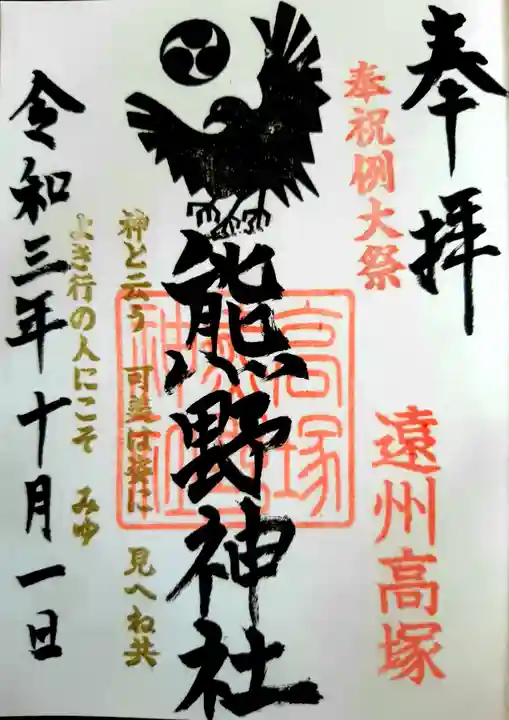 奉拝
奉祝例大祭
遠州高塚
熊野神社
高塚
神社
神と云う 可美は爰に 見へね共
よき行の人にこそ みゆ
令和三年十月一日